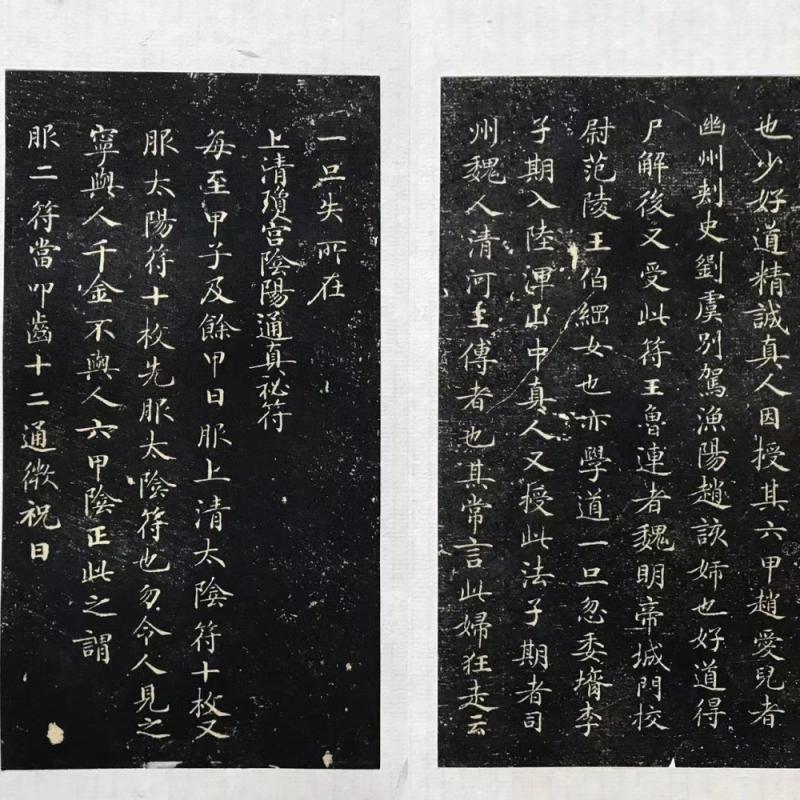 也少好道精誠真人因授其六甲趙愛兒者
幽州刾史劉虞別駕漁陽趙該姉也好道得
尸解後又受此符王魯連者魏明帝城門校
尉范陵王伯綱女也亦學道一旦忽委壻李
子期入陸渾山中真人又授此法子期者司
州魏人清河王傅者也其常言此婦狂走云
一旦失所在
上清瓊宮陰陽通真祕符
每至甲子及餘甲日服上清太陰符十枚又
服太陽符十枚先服太陰符也勿令人見之
寧與人千金不與人六甲陰正此之謂
服二符當叩齒十二通微祝曰